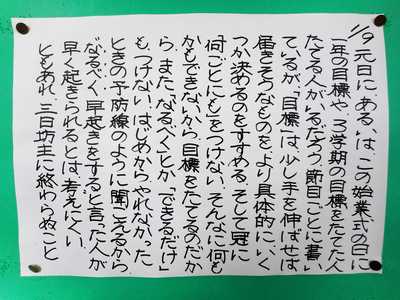 1/9 元日に、あるいは、この始業式の日に
一年の目標や、3学期の目標をたてた人
たてる人がいるだろう。節目ごとに書い
ているが、「目標」は、少し手を伸ばせば、
届きそうなものを、より具体的に、いく
つか決めるのをすすめる。そして冠に
「何ごとにも」をつけない。そんなに何も
かもできないから、目標をたてるのだか
ら。また、「なるべく」とか、「できるだけ」
も、つけない。はじめから、やれなかった
ときの予防線のように聞こえるから
なるべく、早起きをすると言った人が
早く起きられるとは、考えにくい。
ともあれ、三日坊主に終わらぬこと